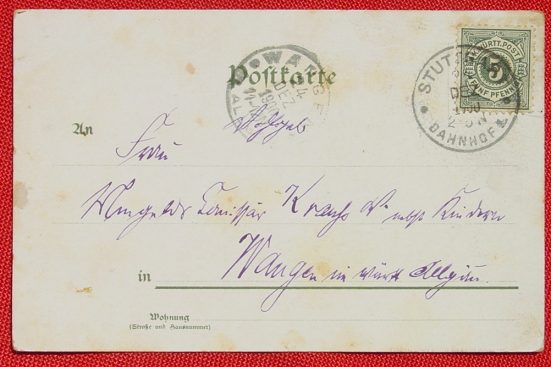 Postkarte
WANGEN
4
DEZ
1900
ALL
K. WÜRTT. POST
5
FÜNF PFENNIG
STUTTGART
DEZ
1900
BAHNHOF
An
Frau
Krachs We nebst Kindern
Wangen im württ Allgäu.
in
Wohnung
(Straße und Hausnummer)